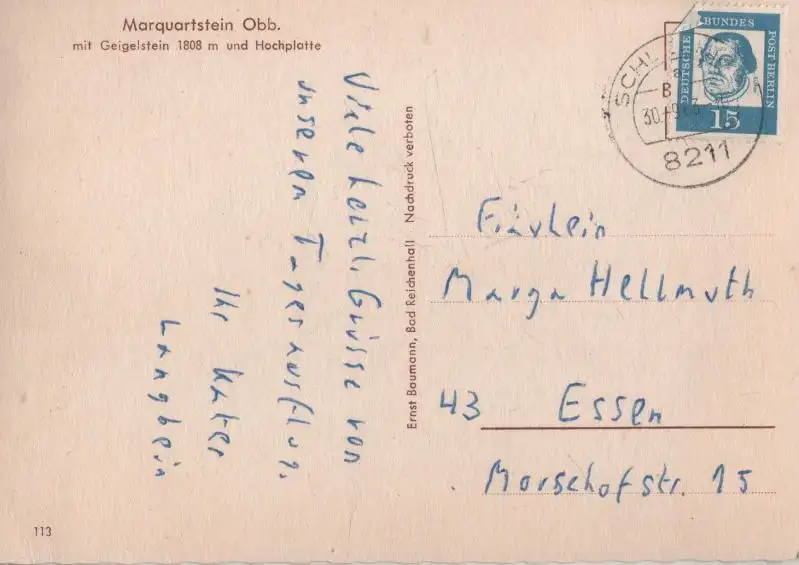 Marquartstein Obb.
mit Geigelstein 1808 m und Hochplatte
Viele herzl. Grüsse von
unserem Tagesausflug.
Ihr Kater
Langbein
Ernst Baumann, Bad Reichenhall Nachdruck verboten
DEUTSCHE BUNDES POST BERLIN
15
30.-9.63
8211
Fräulein
Marga Hellmuth
43 Essen
Morschofstr. 15
113